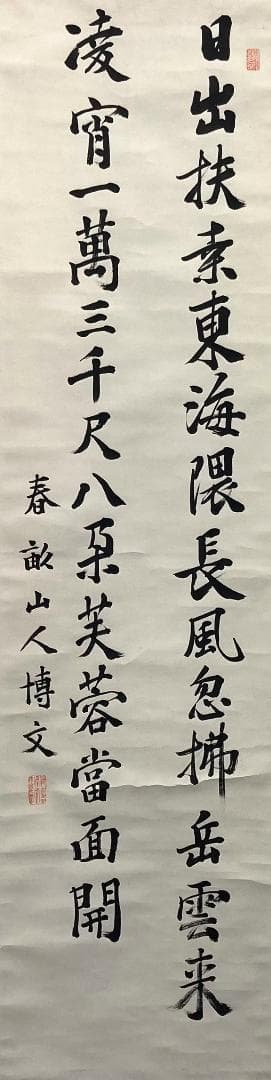 日出扶桒東海隈長風忽拂岳雲来
凌宵一萬三千尺八朶芙蓉當面開
春畝山人博文